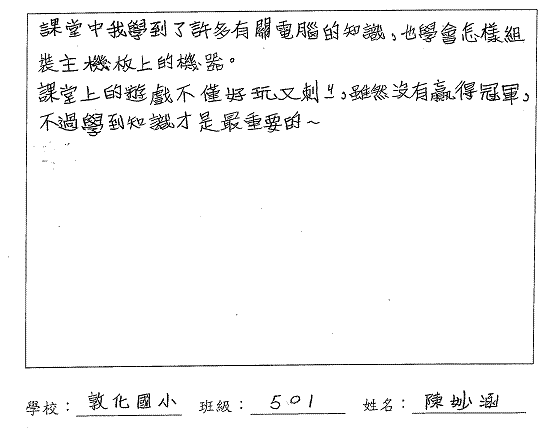 課堂中我學到了許多有關電腦的知識,也學會怎樣組
裝主機板上的機器。
課堂上的遊戲不僅好玩又刺ㄐㄧ,雖然沒有贏得冠軍,
不過學到知識才是最重要的~
學校:敦化國小 班級:501 姓名:陳妙涵